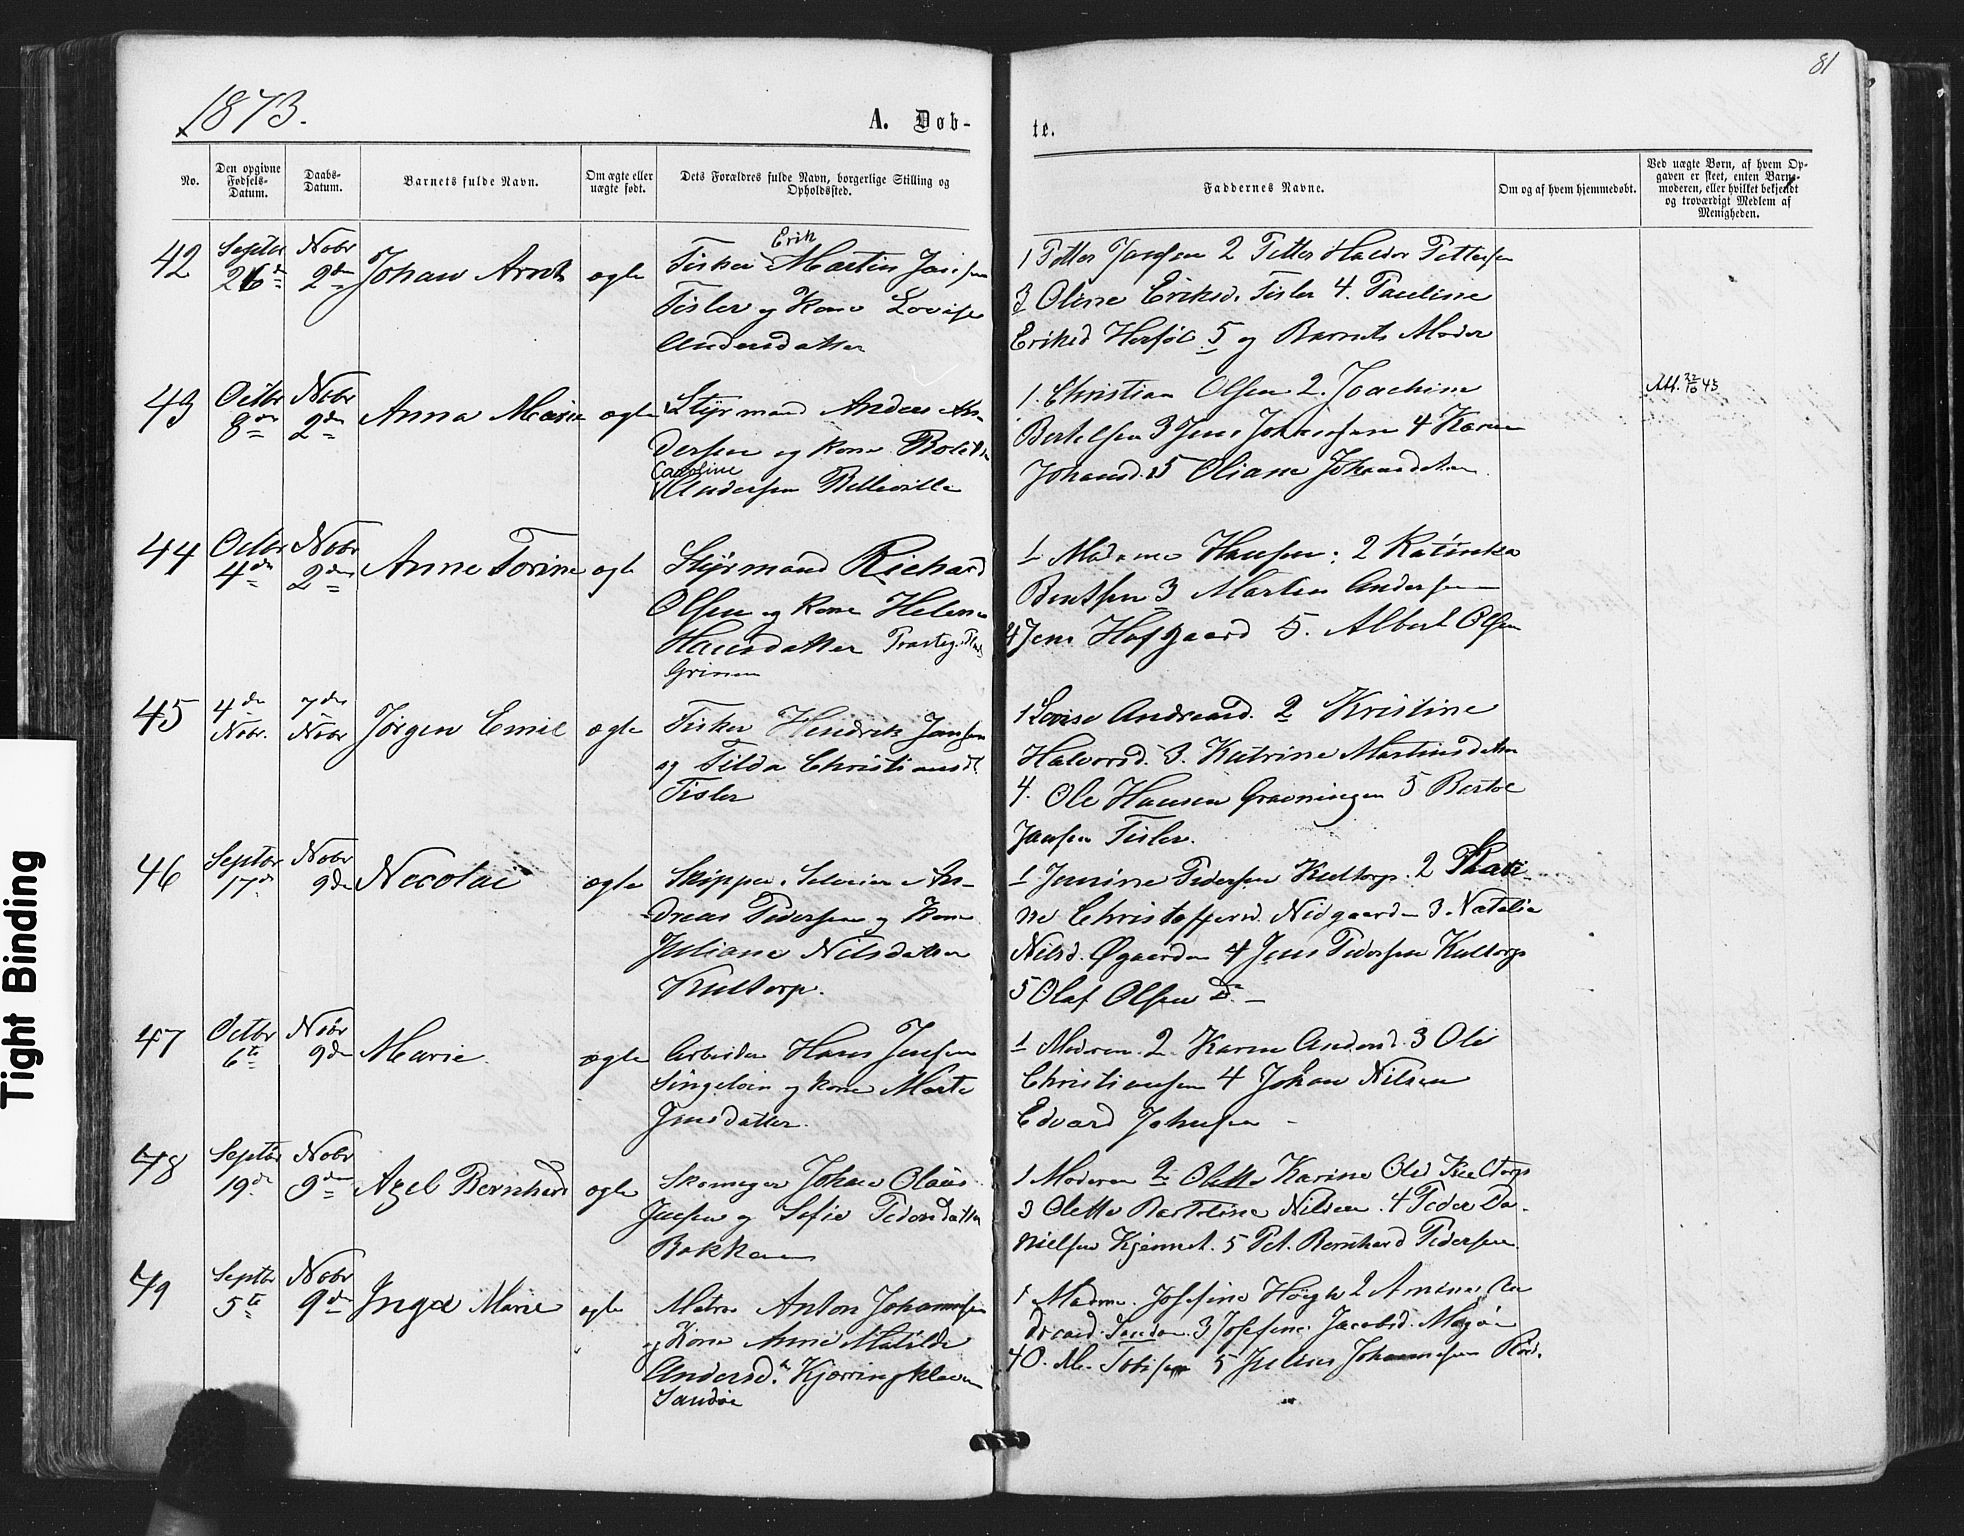 81
1873.
A. Døb-
te.
No.
Den opgivne
Fødsels-
Datum.
Daabs-
Datum.
Barnets fulde Navn.
Om ægte eller
uægte født.
Dets Forældres fulde Navn, borgerlige Stilling og
Opholdssted.
Faddernes Navne.
Om og af hvem hjemmedøbt.
Ved uægte Børn, af hvem Op-
gaven er skeet, enten Barns-
moderen, eller hvilket bekjendt
og troværdigt Medlem af
Menigheden.
42
Septbr
26de
Nobr
2den
Johan Arnt
ægte
Erik
Fisker Martin Jansen
Tisler og Kone Lovise
Andersdatter
1 Petter Jansen 2 Petter Haldor Pettersen
3 Oline Eriksd. Tisler 4. Pauline
Eriksd Herføl 5 og Barnets Moder
43
Octbr
8de
Nobr
2den
Anna Marie
ægte
Styrmand Anders An-
dersen og Kone Bolette
Caroline
Andersen Belleville
1. Christian Olsen 2. Joachim
Bertelsen 3 Jens Johansen 4 Karen
Johansd. 5 Oliane Johansdatter
Att. 22/10 43
44
Octbr
4de
Nobr
2den
Anne Torine
ægte
Styrmand Richard
Olsen og Kone Helene
Hansdatter
Grimen
1 Madame Hansen: 2 Katinka
Bentsen 3 Martin Andersen
4 Jens Hofgaard 5. Albert Olsen
45
4de
Nobr.
7de
Nobr
Jørgen Emil
ægte
Fisker Hendrik Jansen
og Tilda Christiansdt
Tisler
1 Lovise Andreasd. 2 Kristine
Halvorsd. 3. Katrine Martinsdatter
4. Ole Hansen Gravningen 5 Bertol
Jansen Tisler.
46
Septbr
17de
Nobr
9de
Nicolai
ægte
Skipper Severin An-
dreas Pedersen og Kone
Juliane Nilsdatter
Kultorp.
1 Janine Pedersen Kultorp. 2
ne Christoffersd. Nedgaarden 3. Natalia
Nilsd. Øgaarden 4 Jens Pedersen Kultorp
5 Olaf Olsen Do. —
47
Octbr
6te
Nobr
9de
Marie.
ægte
Arbeider Hans Jensen
Singeløen og Kone Marte
Jensdatter.
1 Moderen. 2. Karen Andersd. 3 Ole
Christiansen 4 Johan Nilsen
Edvard Johnsen —
48
Septbr
19de
Nobr
9de
Axel Bernhard
ægte
Skomager Johan Olaus
Jensen og Sofie Pedersdatter
Bakken
1 Moderen 2 Olette Karine Olsd Kultorp
3 Olette Bertoline Nilsen. 4 Peder Da-
nielsen Kjennet. 5 Pet. Bernhard Pedersen.
49
Septbr
5te
Nobr
9de
Inga Marie
ægte
Matros Anton Johannesen
og Kone Anne Matilde
Andersd. Kjærringkleven
Sandøe
1 Madme. Josefine Høegh 2
3 Josefine Jacobsd.
4 O. M. Tobisen 5 Julius Johannesen
Tight Binding